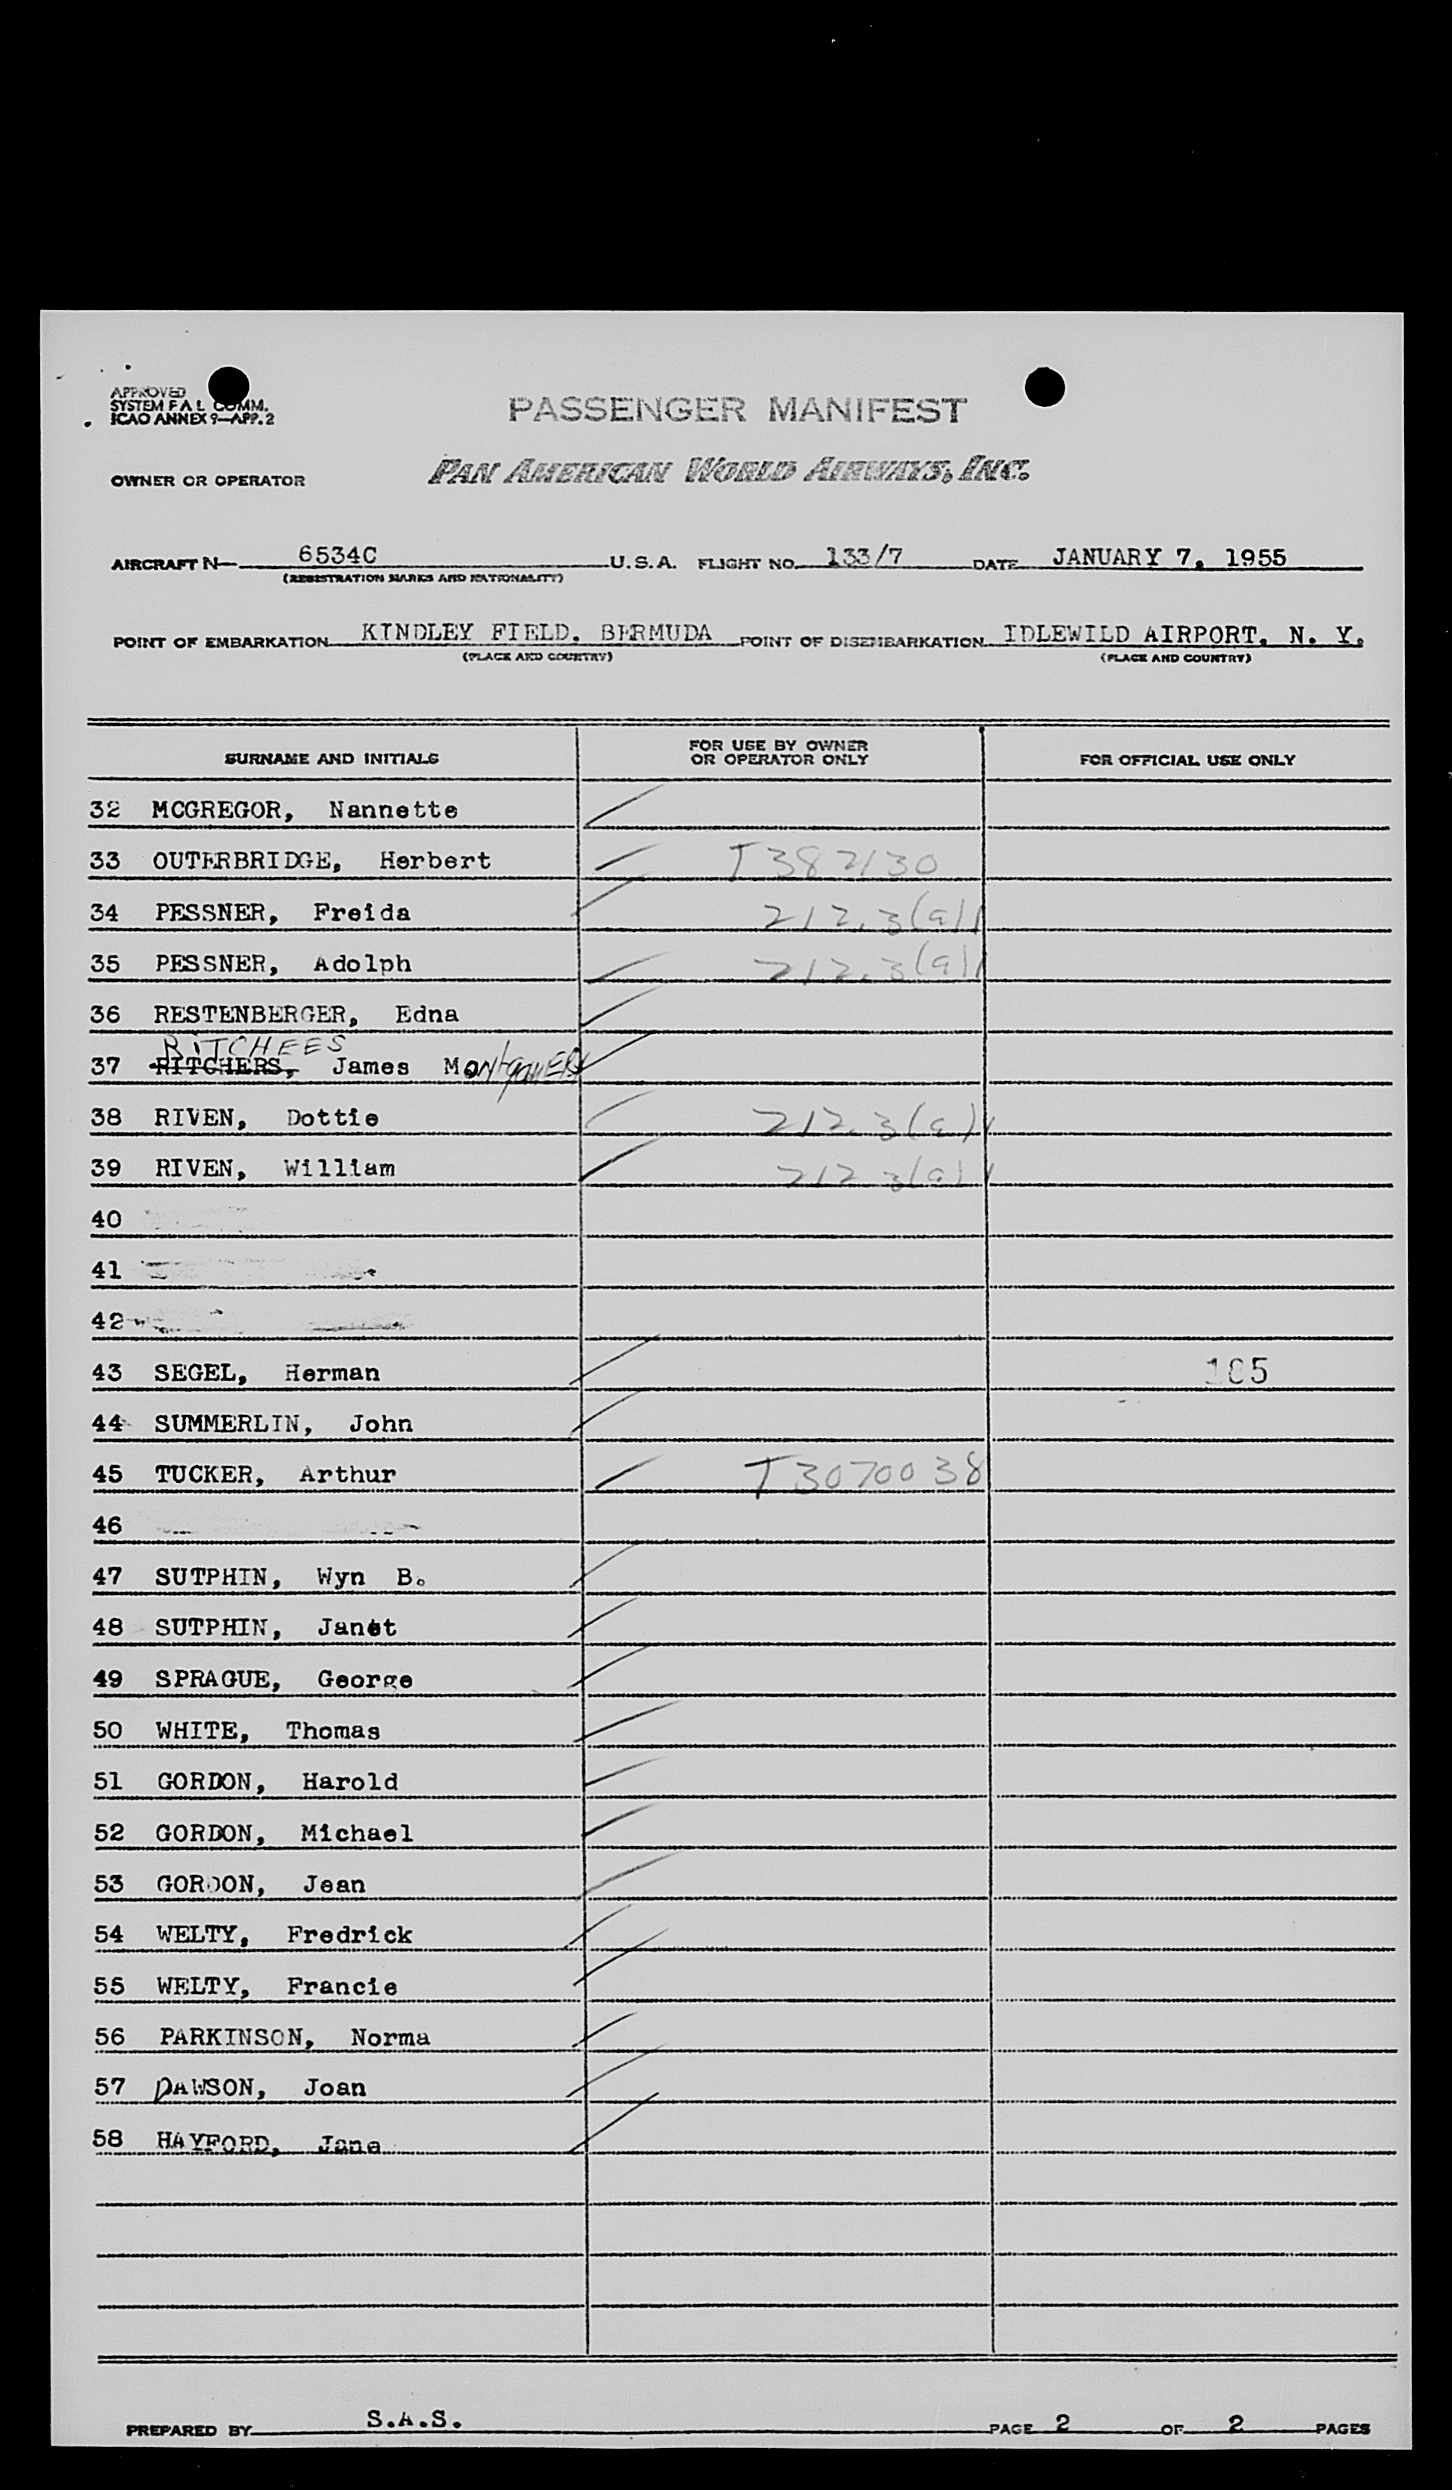 APPROVED
SYSTEM F A L COMM.
ICAO ANNEX 9—APP. 2
PASSENGER MANIFEST
OWNER OR OPERATOR PAN AMERICAN WORLD AIRWAYS, INC.
AIRCRAFT N— 6534C U.S.A. FLIGHT NO. 133/7 DATE JANUARY 7, 1955
(REGISTRATION MARKS AND NATIONALITY)
POINT OF EMBARKATION KINDLEY FIELD, BERMUDA POINT OF DISEMBARKATION IDLEWILD AIRPORT, N. Y.
(PLACE AND COUNTRY) (PLACE AND COUNTRY)
SURNAME AND INITIALS FOR USE BY OWNER OR OPERATOR ONLY FOR OFFICIAL USE ONLY
32 MCGREGOR, Nannette
33 OUTERBRIDGE, Herbert T382130
34 PESSNER, Freida 212.3(a)
35 PESSNER, Adolph 212.3(a)
36 RESTENBERGER, Edna
RITCHEES
37 RITCHERS, James Montgomery
38 RIVEN, Dottie 212.3(a)
39 RIVEN, William 212.3(a)
40
41
42
43 SEGEL, Herman 185
44 SUMMERLIN, John
45 TUCKER, Arthur T3070038
46
47 SUTPHIN, Wyn B.
48 SUTPHIN, Janet
49 SPRAGUE, George
50 WHITE, Thomas
51 GORDON, Harold
52 GORDON, Michael
53 GORDON, Jean
54 WELTY, Fredrick
55 WELTY, Francie
56 PARKINSON, Norma
57 DAWSON, Joan
58 HAYFORD, Jane
PREPARED BY S.A.S. PAGE 2 OF 2 PAGES